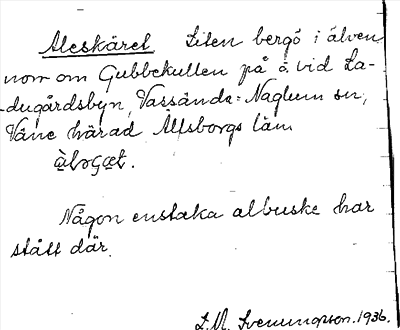 Aleskäret Liten bergö i älven
norr om Gubbekullen på ö. vid La-
dugårdsbyn, Vassända-Naglum sn,
Väne härad Älfsborgs län

Någon enstaka albuske har
stått där.
Svenungsson. 1936.